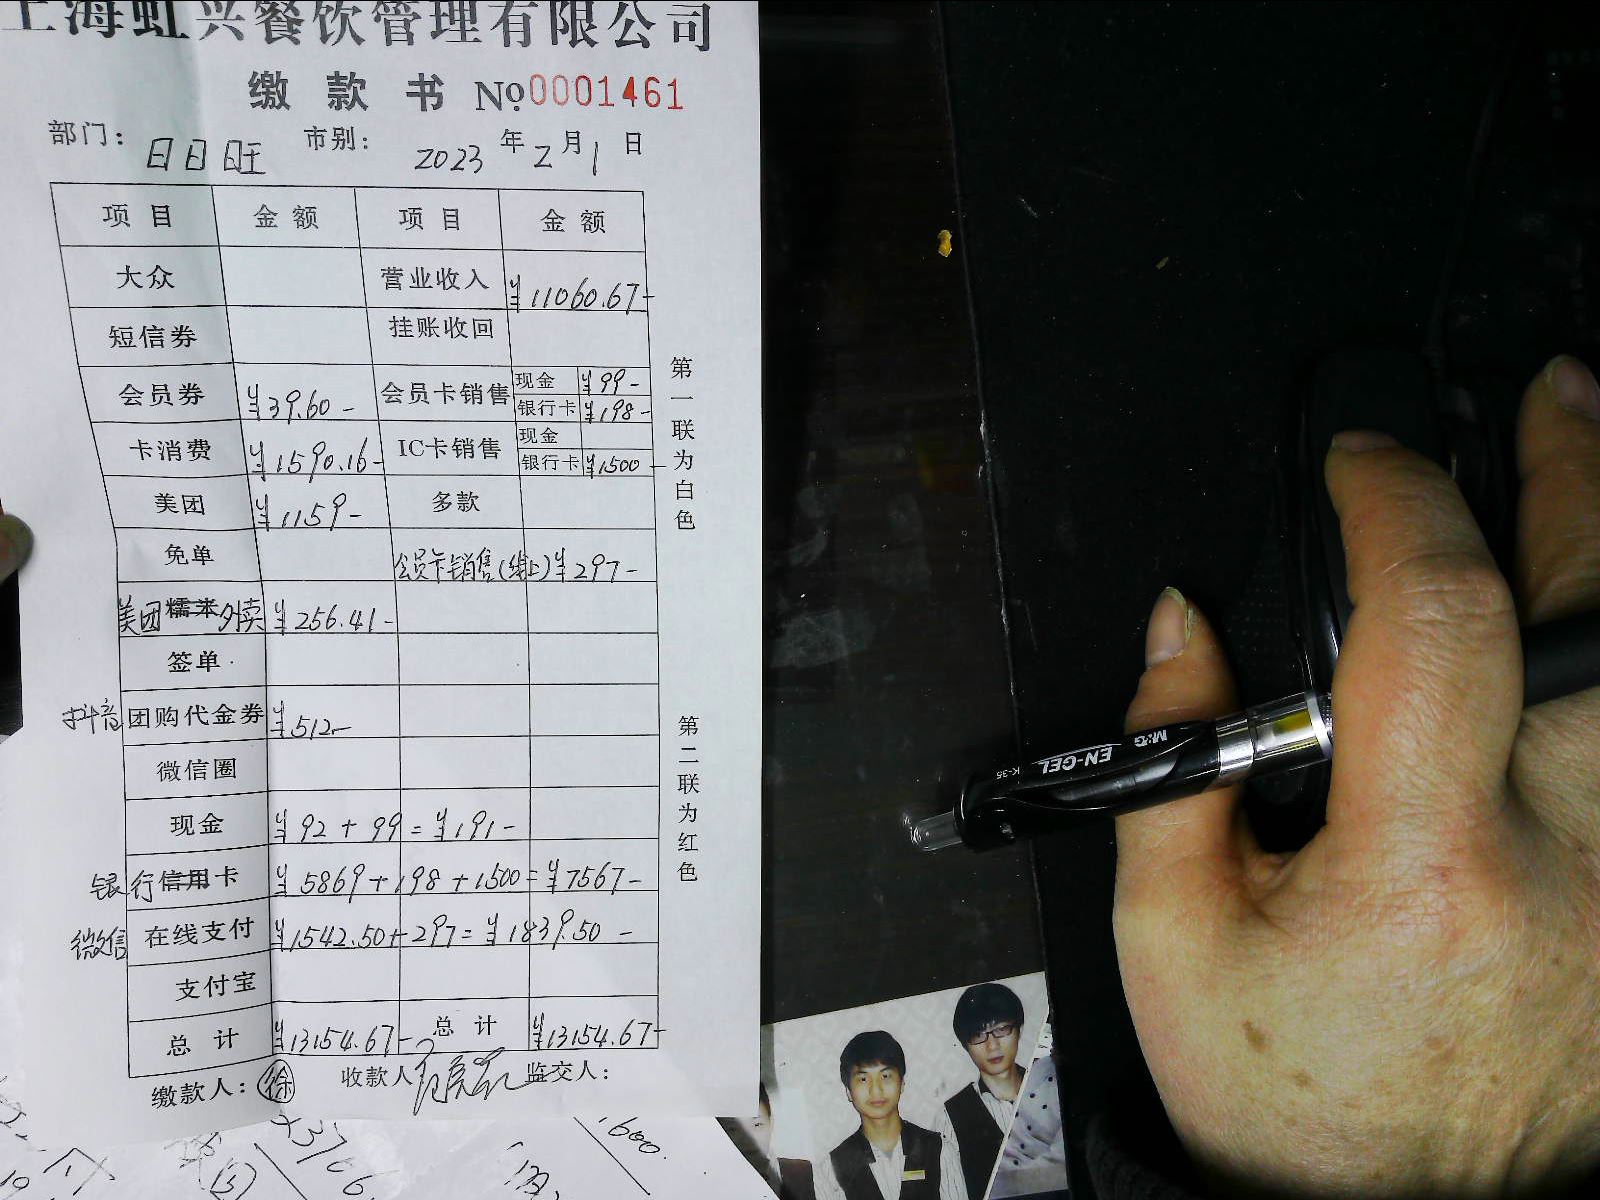 上海虹兴餐饮管理有限公司
缴 款 书 No.0001461
部门: 日日旺 市别: 2023 年 2 月 1 日
项 目 金 额 项 目 金 额
大众 营业收入 ¥11060.67-
短信券 挂账收回
会员券 ¥39.60- 会员卡销售 现金 ¥99-
银行卡 ¥198-
卡消费 ¥1590.16- IC卡销售 现金
银行卡 ¥1500-
美团 ¥1159- 多款
免单 会员卡销售(线上) ¥297-
美团糯米外卖 ¥256.41-
签单
抖音团购代金券 ¥512-
微信圈
现金 ¥92+99=¥191-
银行信用卡 ¥5869+198+1500=¥7567-
微信在线支付 ¥1542.50+297=¥1839.50-
支付宝
总 计 ¥13154.67- 总 计 ¥13154.67-
缴款人: 徐 收款人 监交人:
第一联为白色
第二联为红色
M&G
EN-GEL
K-35
1600.